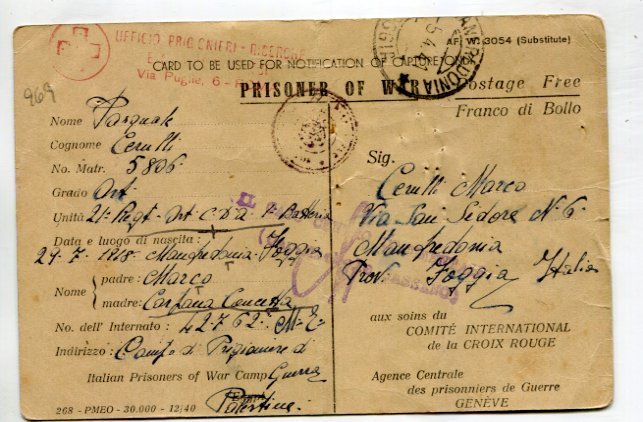 UFFICIO PRIGIONIERI - RICERCHE
Via Puglie, 6 -
MANFREDONIA
AF. W. 3054 (Substitute)
CARD TO BE USED FOR NOTIFICATION OF CAPTURE ONLY
PRISONER OF WAR
Postage Free
Franco di Bollo
969
Nome Pasquale
Cognome Cerulli
No. Matr. 5806
Grado Art
Unità 21° Regt- Art C.D'a 1a Batteria
Data e luogo di nascita:
29-7-1918- Manfredonia- Foggia
Nome
padre: Marco
madre: Concetta
No. dell' Internato: 42762- M.E
Indirizzo: Campo di Prigionieri di
Italian Prisoners of War Camp Guerra
Palestina.
268 - PMEO - 30.000 - 12/40
Sig.
Cerulli Marco
Via San Sidore N-6
Manfredonia
Prov. Foggia Italia
aux soins du
COMITÉ INTERNATIONAL
de la CROIX ROUGE
Agence Centrale
des prisonniers de Guerre
GENÈVE